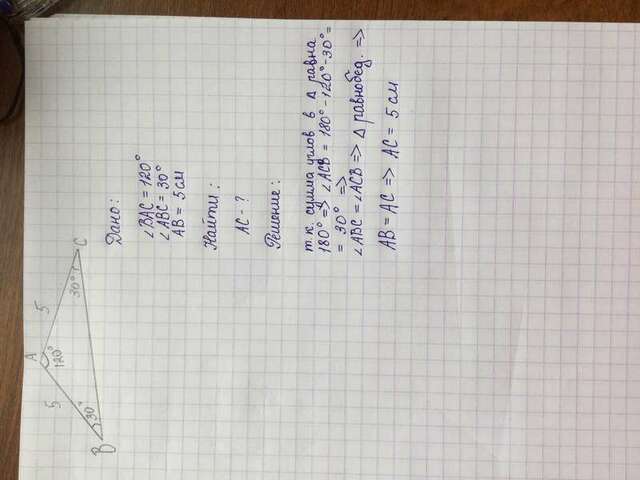 A
5
5
120°
30°
30°
B
C
Дано:
∠BAC = 120°
∠ABC = 30°
AB = 5 см
Найти:
AC - ?
Решение:
т.к. сумма углов в Δ равна
180° => ∠ACB = 180° - 120° - 30° =
= 30° =>
∠ABC = ∠ACB => Δ равнобед. =>
AB = AC => AC = 5 см